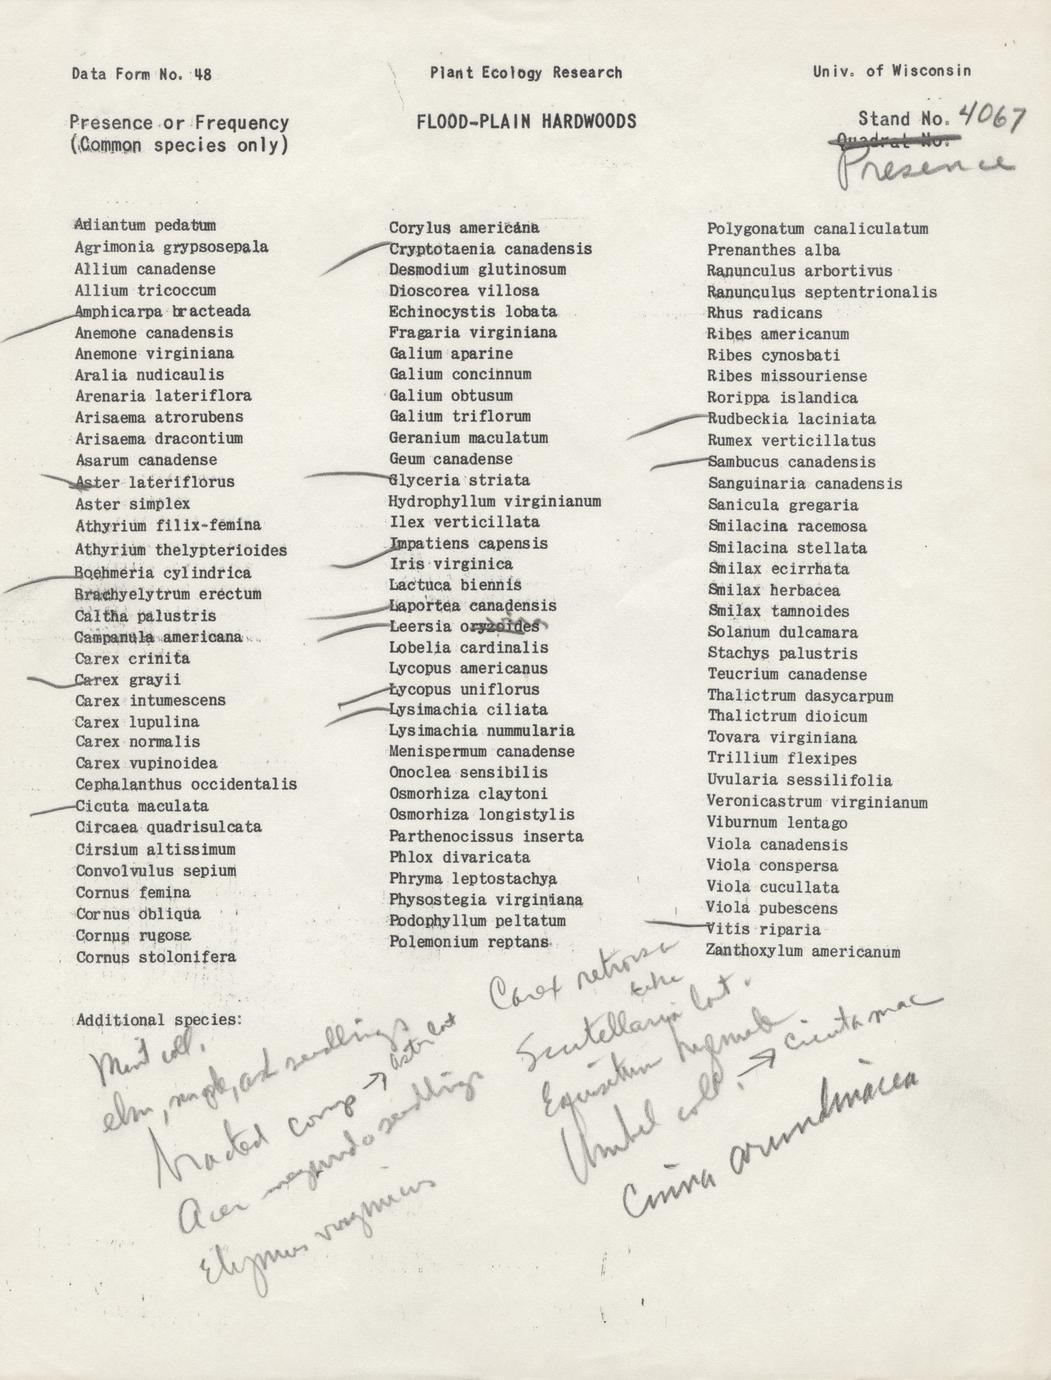 Data Form No. 48
Plant Ecology Research
Univ. of Wisconsin
Presence or Frequency
(Common species only)
FLOOD-PLAIN HARDWOODS
Stand No. 4067
Quadrat No.
Presence
Adiantum pedatum
Agrimonia grypsosepala
Allium canadense
Allium tricoccum
Amphicarpa bracteada
Anemone canadensis
Anemone virginiana
Aralia nudicaulis
Arenaria lateriflora
Arisaema atrorubens
Arisaema dracontium
Asarum canadense
Aster lateriflorus
Aster simplex
Athyrium filix-femina
Athyrium thelypterioides
Boehmeria cylindrica
Brachyelytrum erectum
Caltha palustris
Campanula americana
Carex crinita
Carex grayii
Carex intumescens
Carex lupulina
Carex normalis
Carex vupinoidea
Cephalanthus occidentalis
Cicuta maculata
Circaea quadrisulcata
Cirsium altissimum
Convolvulus sepium
Cornus femina
Cornus obliqua
Cornus rugosa
Cornus stolonifera
Corylus americana
Cryptotaenia canadensis
Desmodium glutinosum
Dioscorea villosa
Echinocystis lobata
Fragaria virginiana
Galium aparine
Galium concinnum
Galium obtusum
Galium triflorum
Geranium maculatum
Geum canadense
Glyceria striata
Hydrophyllum virginianum
Ilex verticillata
Impatiens capensis
Iris virginica
Lactuca biennis
Laportea canadensis
Leersia oryzoides
Lobelia cardinalis
Lycopus americanus
Lycopus uniflorus
Lysimachia ciliata
Lysimachia nummularia
Menispermum canadense
Onoclea sensibilis
Osmorhiza claytoni
Osmorhiza longistylis
Parthenocissus inserta
Phlox divaricata
Phryma leptostachya
Physostegia virginiana
Podophyllum peltatum
Polemonium reptans
Polygonatum canaliculatum
Prenanthes alba
Ranunculus arbortivus
Ranunculus septentrionalis
Rhus radicans
Ribes americanum
Ribes cynosbati
Ribes missouriense
Rorippa islandica
Rudbeckia laciniata
Rumex verticillatus
Sambucus canadensis
Sanguinaria canadensis
Sanicula gregaria
Smilacina racemosa
Smilacina stellata
Smilax ecirrhata
Smilax herbacea
Smilax tamnoides
Solanum dulcamara
Stachys palustris
Teucrium canadense
Thalictrum dasycarpum
Thalictrum dioicum
Tovara virginiana
Trillium flexipes
Uvularia sessilifolia
Veronicastrum virginianum
Viburnum lentago
Viola canadensis
Viola conspersa
Viola cucullata
Viola pubescens
Vitis riparia
Zanthoxylum americanum
Additional species:
Mint coll.
elm, maple, ash seedlings
bracted comp → aster lat
Acer negundo seedlings
Elymus virginicus
Carex retrorsa
Scutellaria lat.
Equisetum hyemale
Umbel coll. → cicuta mac
Cinna arundinacea